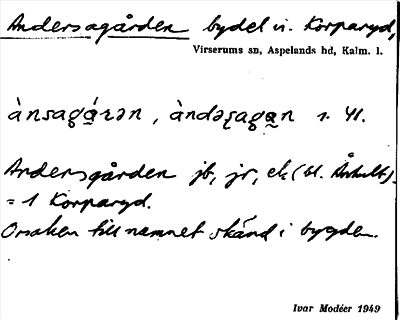 Andersagården bydel i. Korparyd,
Virserums sn, Aspelands hd, Kalm. l.
ànsagá̤rən, àndəʂagα̤n 1. 41.
Andersgården jb, jr, ek (bl. Århult) -
= 1 Korparyd.
Orsaken till namnet okänd i bygden.
Ivar Modéer 1949